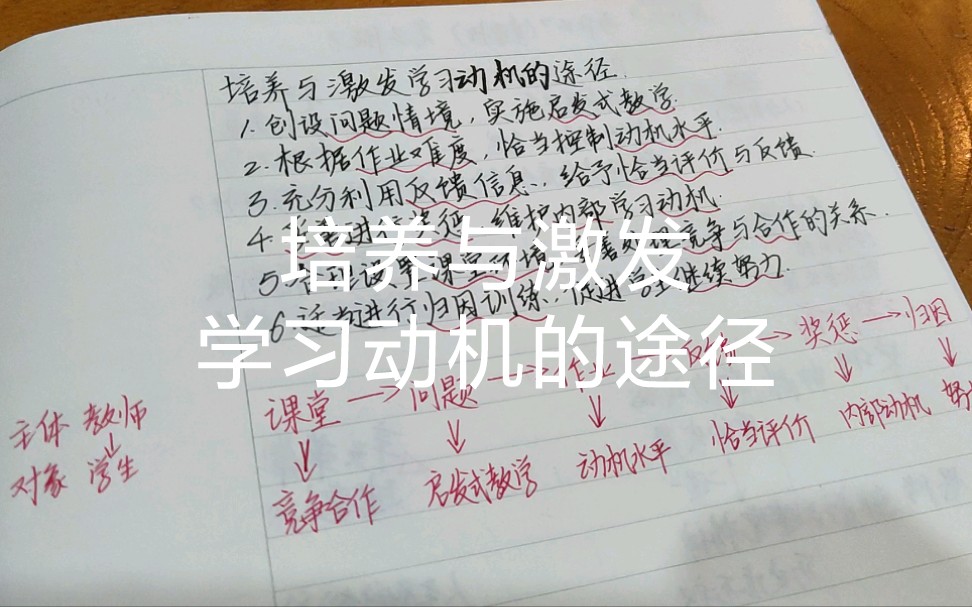 培养与激发学习动机的途径.
1. 创设问题情境, 实施启发式教学.
2. 根据作业难度, 恰当控制动机水平.
3. 充分利用反馈信息, 给予恰当评价与反馈.
4. 进行奖惩, 维护内部学习动机.
5. 设置课堂环境, 处理竞争与合作的关系.
6. 适当进行归因训练, 促进学生继续努力.
培养与激发
学习动机的途径
课堂 → 问题 → 作业 → 反馈 → 奖惩 → 归因
竞争合作 启发式教学 动机水平 恰当评价 内部动机 努
主体 教师
对象 学生